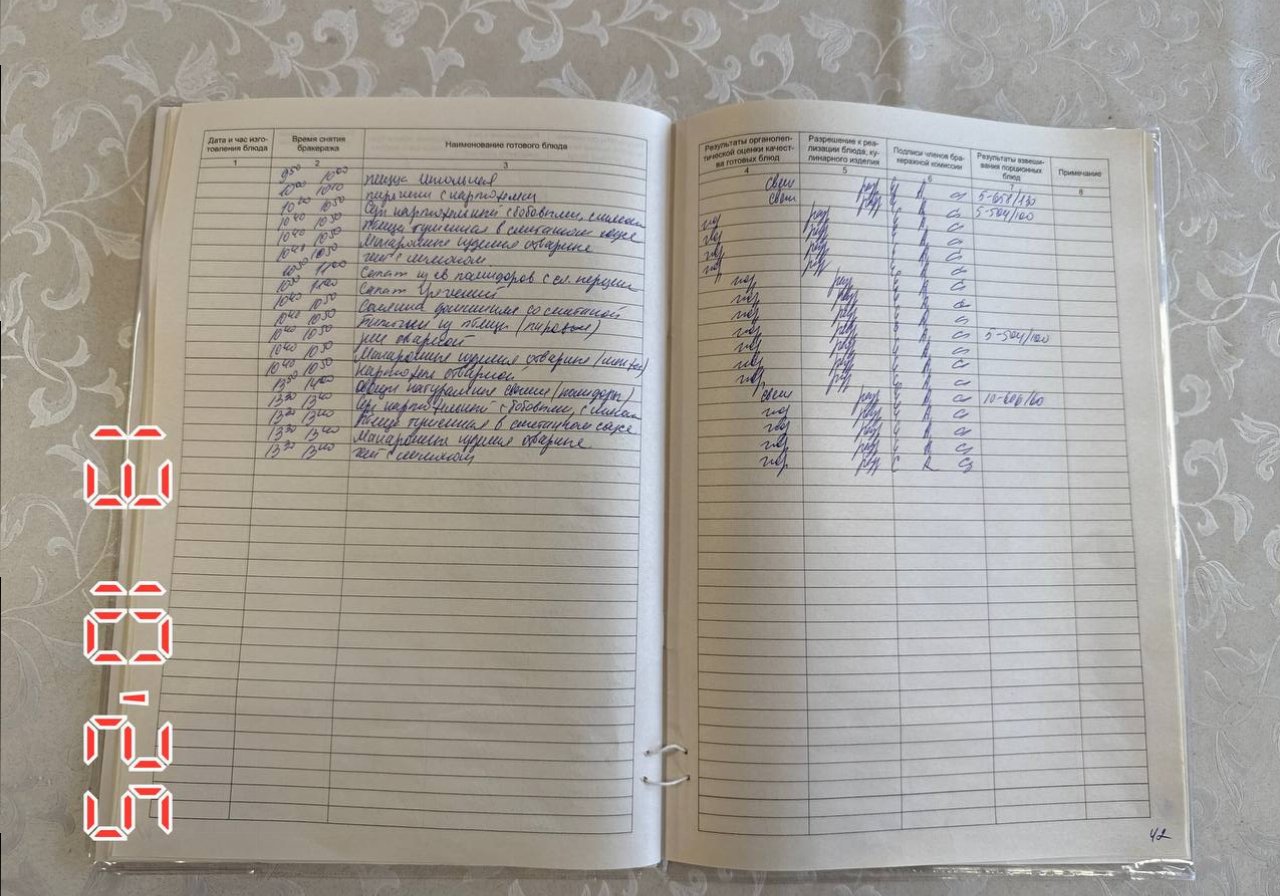 Дата и час изго-
товления блюда
Время снятия
бракеража
Наименование готового блюда
1
2
3
9 50 10 00 пицца школьная
10 00 10 10 пирожки с картофелем
10 40 10 50 Суп картофельный с бобовыми, с мясом
10 40 10 50 Птица тушенная в сметанном соусе
10 40 10 50 Макаронные изделия отварные
10 40 10 50 чай с лимоном
10 50 11 00 Салат из св помидоров с сл. перцем
10 50 11 00 Салат
10 40 10 50 Солянка домашняя со сметаной
10 40 10 50 Биточки из птицы (паровые)
10 40 10 50 рис отварной
10 40 10 50 Макаронные изделия отварные
10 40 10 50 Картофель отварной
13 50 14 00 Овощи натуральные свежие (помидоры)
13 30 13 40 Суп картофельный с бобовыми, с мясом
13 30 13 40 Птица тушенная в сметанном соусе
13 30 13 40 Макаронные изделия отварные
13 30 13 40 чай с лимоном
Результаты органолеп-
тической оценки качест-
ва готовых блюд
Разрешение к реа-
лизации блюда, ку-
линарного изделия
Подписи членов бра-
керажной комиссии
Результаты взвеши-
вания порционных
блюд
Примечание
4
5
6
7
8
свеж разр 5-658/130
свеж разр 5-504/100
гор разр
гор разр
гор разр
гор разр
гор разр
гор разр
гор разр
гор разр 5-504/100
гор разр
гор разр
гор разр
свеж разр 10-606/60
гор разр
гор разр
гор разр
гор разр
42
13
10.25